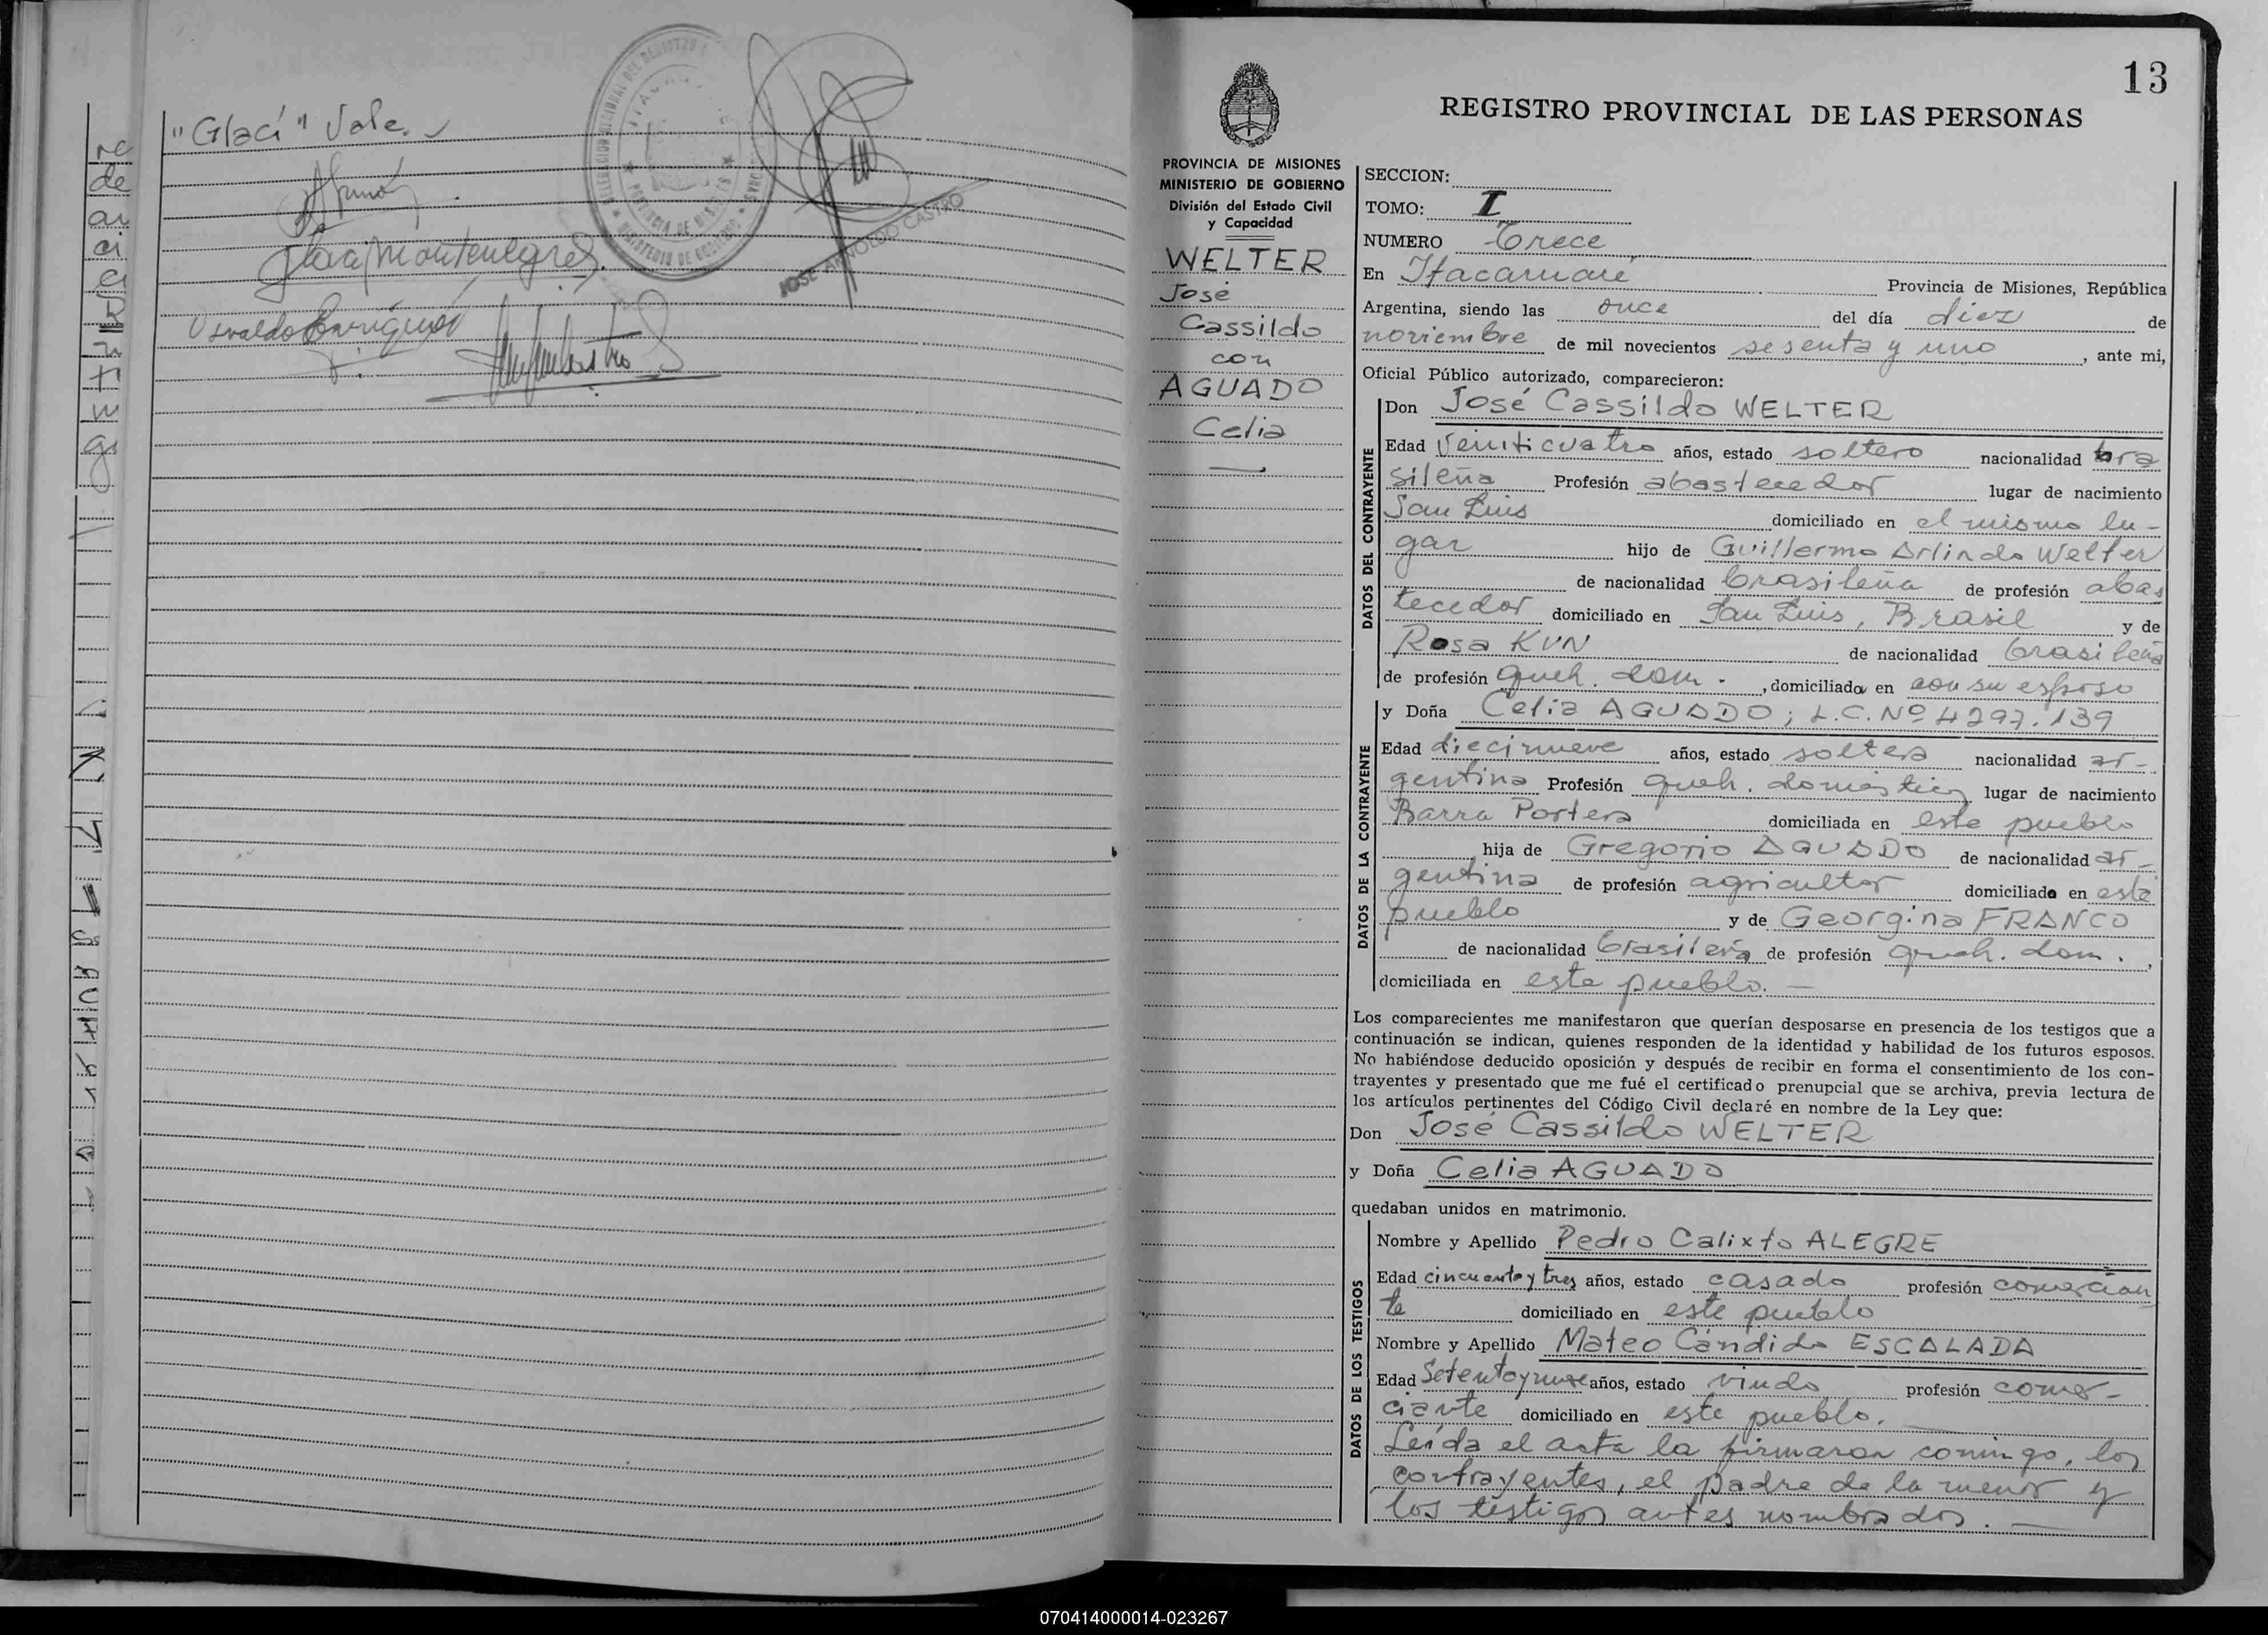 "Glací" Vale.
Osvaldo Enriquez
JOSE ARNOLDO CASTRO
PROVINCIA DE MISIONES
MINISTERIO DE GOBIERNO
División del Estado Civil
y Capacidad
WELTER
José
Cassildo
con
AGUADO
Celia
13
REGISTRO PROVINCIAL DE LAS PERSONAS
SECCION:
TOMO: I
NUMERO Trece
En Itacaruaré Provincia de Misiones, República
Argentina, siendo las once del día diez de
noviembre de mil novecientos sesenta y uno, ante mi,
Oficial Público autorizado, comparecieron:
DATOS DEL CONTRAYENTE
Don José Cassildo WELTER
Edad veinticuatro años, estado soltero nacionalidad bra
sileña Profesión abastecedor lugar de nacimiento
San Luis domiciliado en el mismo lu-
gar hijo de Guillermo Arlindo Welter
de nacionalidad brasileña de profesión abas
tecedor domiciliado en San Luis, Brasil y de
Rosa KUN de nacionalidad brasileña
de profesión queh. dom. , domiciliada en con su esposo
DATOS DE LA CONTRAYENTE
y Doña Celia AGUADO; L.C. Nº 4297.139
Edad diecinueve años, estado soltera nacionalidad ar-
gentina Profesión queh. domésticos lugar de nacimiento
Barra Portera domiciliada en este pueblo
hija de Gregorio AGUADO de nacionalidad ar-
gentina de profesión agricultor domiciliado en este
pueblo y de Georgina FRANCO
de nacionalidad brasileña de profesión queh. dom. ,
domiciliada en este pueblo. —
Los comparecientes me manifestaron que querían desposarse en presencia de los testigos que a
continuación se indican, quienes responden de la identidad y habilidad de los futuros esposos.
No habiéndose deducido oposición y después de recibir en forma el consentimiento de los con-
trayentes y presentado que me fué el certificado prenupcial que se archiva, previa lectura de
los artículos pertinentes del Código Civil declaré en nombre de la Ley que:
Don José Cassildo WELTER
y Doña Celia AGUADO
quedaban unidos en matrimonio.
DATOS DE LOS TESTIGOS
Nombre y Apellido Pedro Calixto ALEGRE
Edad cincuenta y tres años, estado casado profesión comercian
te domiciliado en este pueblo
Nombre y Apellido Mateo Cándido ESCALADA
Edad años, estado viudo profesión comer-
ciante domiciliado en este pueblo.
Leída el acta la firmaron conmigo, los
contrayentes, el padre de la menor y
los testigos antes nombrados. —
070414000014-023267